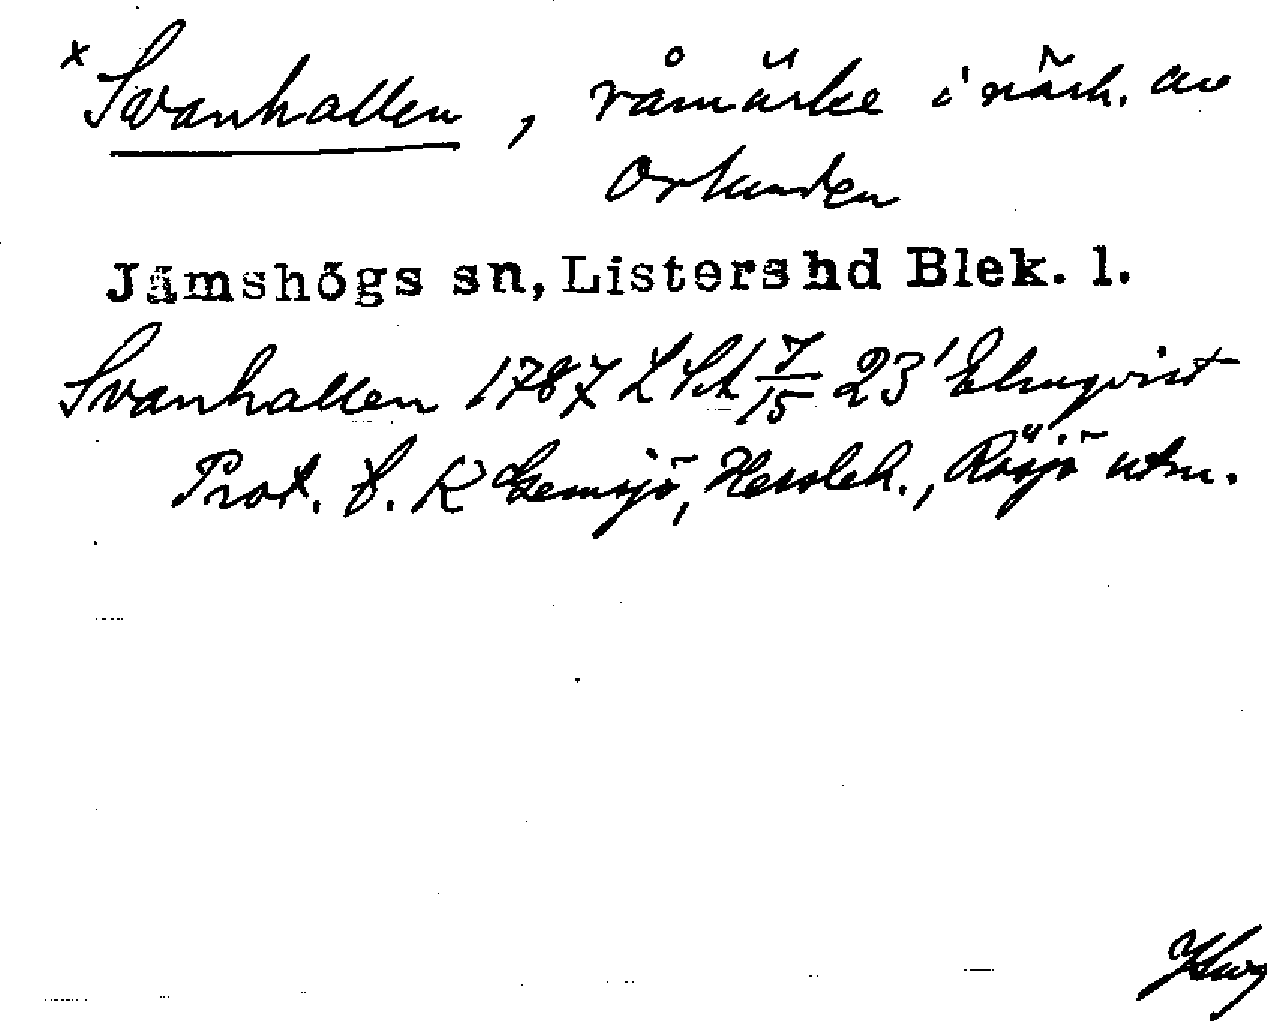 x Svanhallen, råmärke i närh. av
Orlunden
Jämshögs sn, Listers hd Blek. l.
Svanhallen 1787 LSA 7/15 23' Elmqvist
Prot. f. K Gemsjö, Hessleh., Rösjö utm.